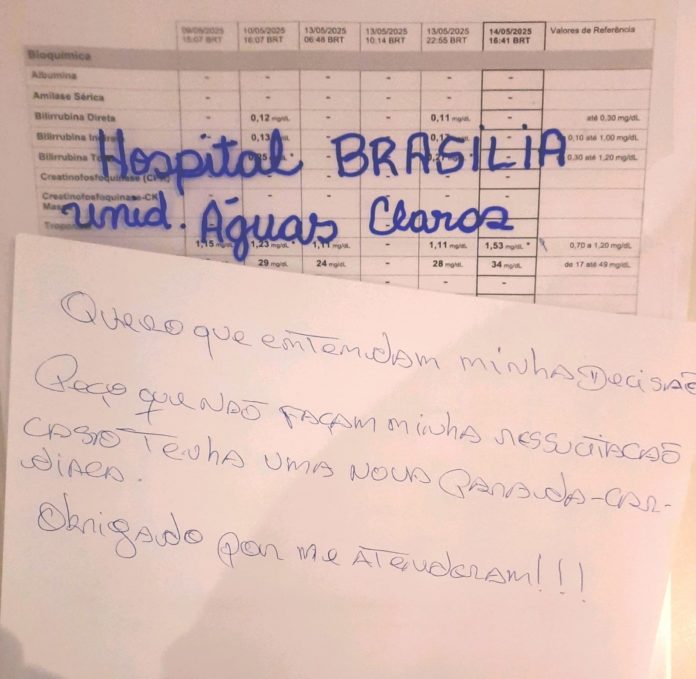 09/05/2025 10/05/2025 13/05/2025 13/05/2025 13/05/2025 14/05/2025 Valores de Referência
15:07 BRT 16:07 BRT 06:48 BRT 10:14 BRT 22:55 BRT 16:41 BRT
Bioquímica
Albumina - - - - - -
Amilase Sérica - - - - - -
Bilirrubina Direta - 0,12 mg/dL - - 0,11 mg/dL - até 0,30 mg/dL
Bilirrubina 0,13 0,10 até 1,00 mg/dL
Bilirrubina 0,30 até 1,20 mg/dL
Hospital BRASÍLIA
Creatinofosfoquinase
Creatinofosfoquinase-CK
unid. Águas Claras
1,15 mg/dL 1,23 mg/dL 1,11 mg/dL - 1,11 mg/dL 1,53 mg/dL * 0,70 a 1,20 mg/dL
29 mg/dL 24 mg/dL - 28 mg/dL 34 mg/dL de 17 até 49 mg/dL
Quero que entendam minha Decisão
Peço que NÃO façam minha ressucitação
caso tenha uma nova parada-car-
díaca.
Obrigado por me atenderam!!!